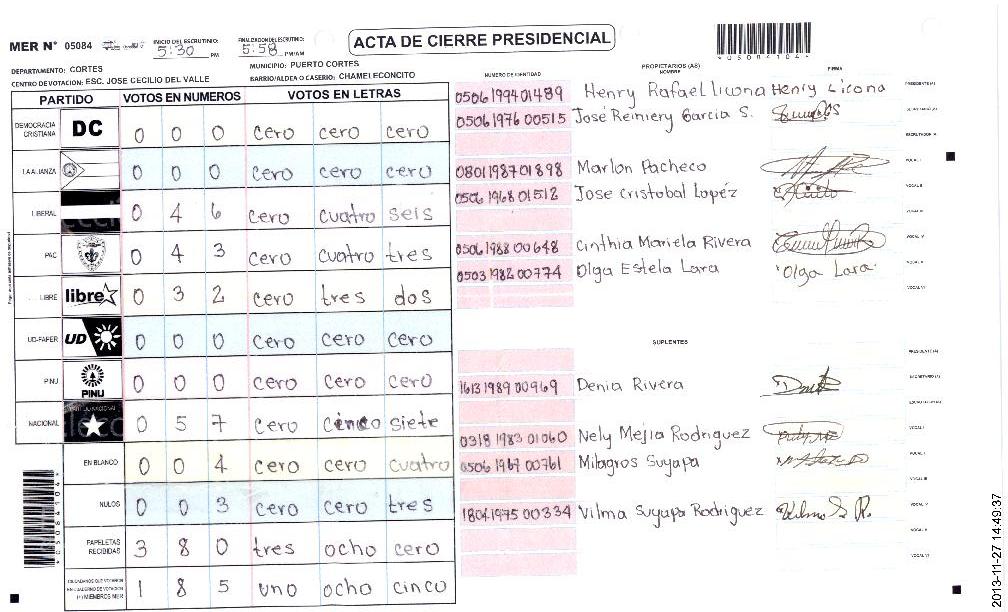 MER N° 05084
INICIO DEL ESCRUTINIO: 5:30 PM
FINALIZACION DEL ESCRUTINIO: 5:58 PM/AM
ACTA DE CIERRE PRESIDENCIAL
*05084104*
DEPARTAMENTO: CORTES
MUNICIPIO: PUERTO CORTES
CENTRO DE VOTACION: ESC. JOSE CECILIO DEL VALLE
BARRIO/ALDEA O CASERIO: CHAMELECONCITO
PARTIDO VOTOS EN NUMEROS VOTOS EN LETRAS
DEMOCRACIA CRISTIANA DC 0 0 0 cero cero cero
LA ALIANZA 0 0 0 cero cero cero
LIBERAL 0 4 6 cero cuatro seis
PAC 0 4 3 cero cuatro tres
LIBRE libre 0 3 2 cero tres dos
UD-FAPER UD 0 0 0 cero cero cero
PINU PINU 0 0 0 cero cero cero
NACIONAL 0 5 7 cero cinco siete
EN BLANCO 0 0 4 cero cero cuatro
NULOS 0 0 3 cero cero tres
PAPELETAS RECIBIDAS 3 8 0 tres ocho cero
CIUDADANOS QUE VOTARON EN CUADERNO DE VOTACION (+) MIEMBROS MER 1 8 5 uno ocho cinco
NUMERO DE IDENTIDAD
PROPIETARIOS (AS)
NOMBRE
FIRMA
0506 1994 01489 Henry Rafael licona Henry Licona
PRESIDENTE (A)
0506 1976 00515 José Reiniery Garcia S.
SECRETARIO (A)
ESCRUTADOR (A)
0801 1987 01898 Marlon Pacheco
VOCAL I
0506 1968 01512 Jose cristobal Lopéz
VOCAL II
VOCAL III
0506 1988 00648 Cinthia Mariela Rivera
VOCAL IV
0503 1982 00774 Olga Estela Lara Olga Lara
VOCAL V
VOCAL VI
SUPLENTES
PRESIDENTE (A)
1613 1989 00969 Denia Rivera
SECRETARIO (A)
ESCRUTADOR (A)
0318 1983 01060 Nely Mejia Rodriguez
VOCAL I
0506 1967 00761 Milagros Suyapa
VOCAL II
VOCAL III
1804 1975 00334 Vilma Suyapa Rodriguez Vilma S. R.
VOCAL IV
VOCAL V
VOCAL VI
*05084104*
2013-11-27 14:49:37